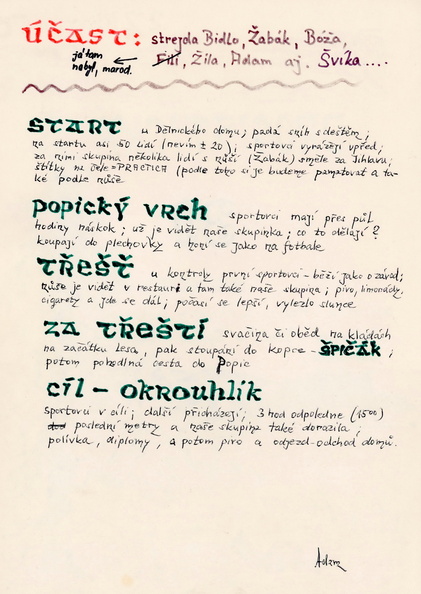 ÚČAST: strejda Bidlo, Žabák, Bóža,
Fili, Žíla, Adam aj. Švika....
já tam
nebyl, marod.
START u Dělnického domu; padá sníh s deštěm;
na startu asi 50 lidí (nevím ± 20); sportovci vyrážejí vpřed;
za nimi skupina několika lidí s růží (Žabák) směle za Jihlavu;
štítky na čele = PRACTICA (podle toho si je budeme pamatovat a ta-
ké podle růže
POPICKÝ VRCH sportovci mají přes půl
hodiny náskok; už je vidět naše skupinka; co to dělají?
koupají do plechovky a honí se jako na fotbale
TŘEŠŤ u kontroly první sportovci - běží jako o závod;
růže je vidět v restauraci a tam také naše skupina; pivo, limonády,
cigarety a jde se dál; počasí se lepší, vylezlo slunce
ZA TŘEŠTÍ svačina či oběd na kládách
na začátku lesa, pak stoupání do kopce - ŠPIČÁK;
potom pohodlná cesta do Popic
CÍL - OKROUHLÍK
sportovci v cíli; další přicházejí; 3 hod odpoledne (15⁰⁰)
poslední metry a naše skupina také dorazila;
polívka, diplomy, a potom pivo a odjezd-odchod domů.
Adam